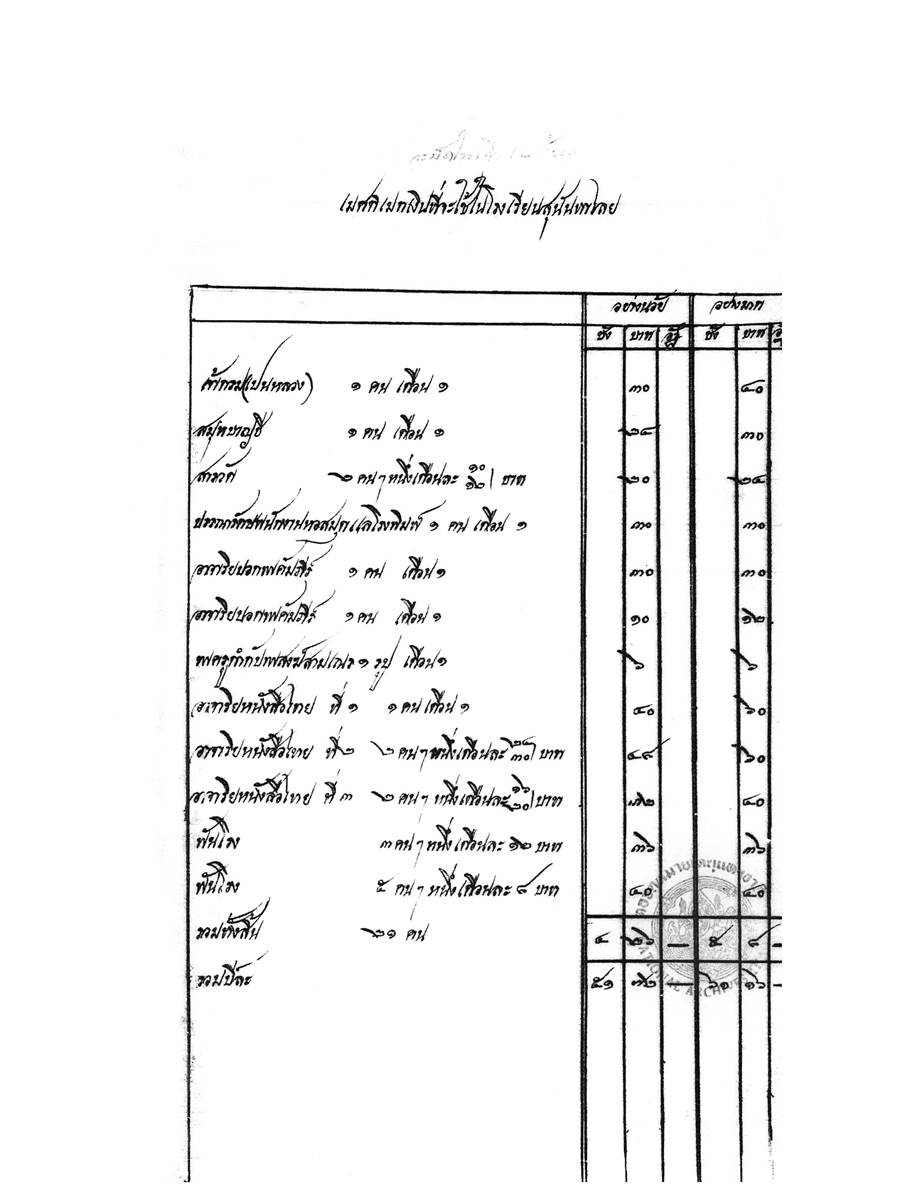 เมศติเมตเงินที่จะใช้ในโรงเรียนสุนันทาไลย
อย่างน้อย อย่างมาก
ชั่ง บาท อัฐ ชั่ง บาท
เจ้ากรม(เปนหลวง) ๑ คน เดือน ๑ ๓๐ ๔๐
สมุหบาญชี ๑ คน เดือน ๑ ๒๔ ๓๐
สารวัด ๒ คน ๆ หนึ่งเดือนละ ๑๐ ๑๒ บาท ๒๐ ๒๔
บรรณารักษพนักงานหอสมุดแลโรงพิมพ์ ๑ คน เดือน ๑ ๓๐ ๓๐
อาจาริยบอกพระคัมภีร์ ๑ คน เดือน ๑ ๓๐ ๓๐
อาจาริยบอกพระคัมภีร์ ๑ คน เดือน ๑ ๑๐ ๑๒
พระครูกำกับพระสงฆ์สามเณร ๑ รูป เดือน ๑ ๖ ๖
อาจาริยหนังสือไทย ที่ ๑ ๑ คน เดือน ๑ ๔๐ ๖๐
อาจาริยหนังสือไทย ที่ ๒ ๒ คน ๆ หนึ่งเดือนละ ๒๔ ๓๐ บาท ๔๘ ๖๐
อาจาริยหนังสือไทย ที่ ๓ ๒ คน ๆ หนึ่งเดือนละ ๑๖ ๒๐ บาท ๓๒ ๔๐
พันโรง ๓ คน ๆ หนึ่งเดือนละ ๑๒ บาท ๓๖ ๓๖
พันโรง ๕ คน ๆ หนึ่งเดือนละ ๘ บาท ๔๐ ๔๐
รวมทั้งสิ้น ๒๑ คน ๔ ๒๖ — ๕ ๘ —
รวมปีละ ๕๑ ๗๒ — ๖๑ ๑๖ —